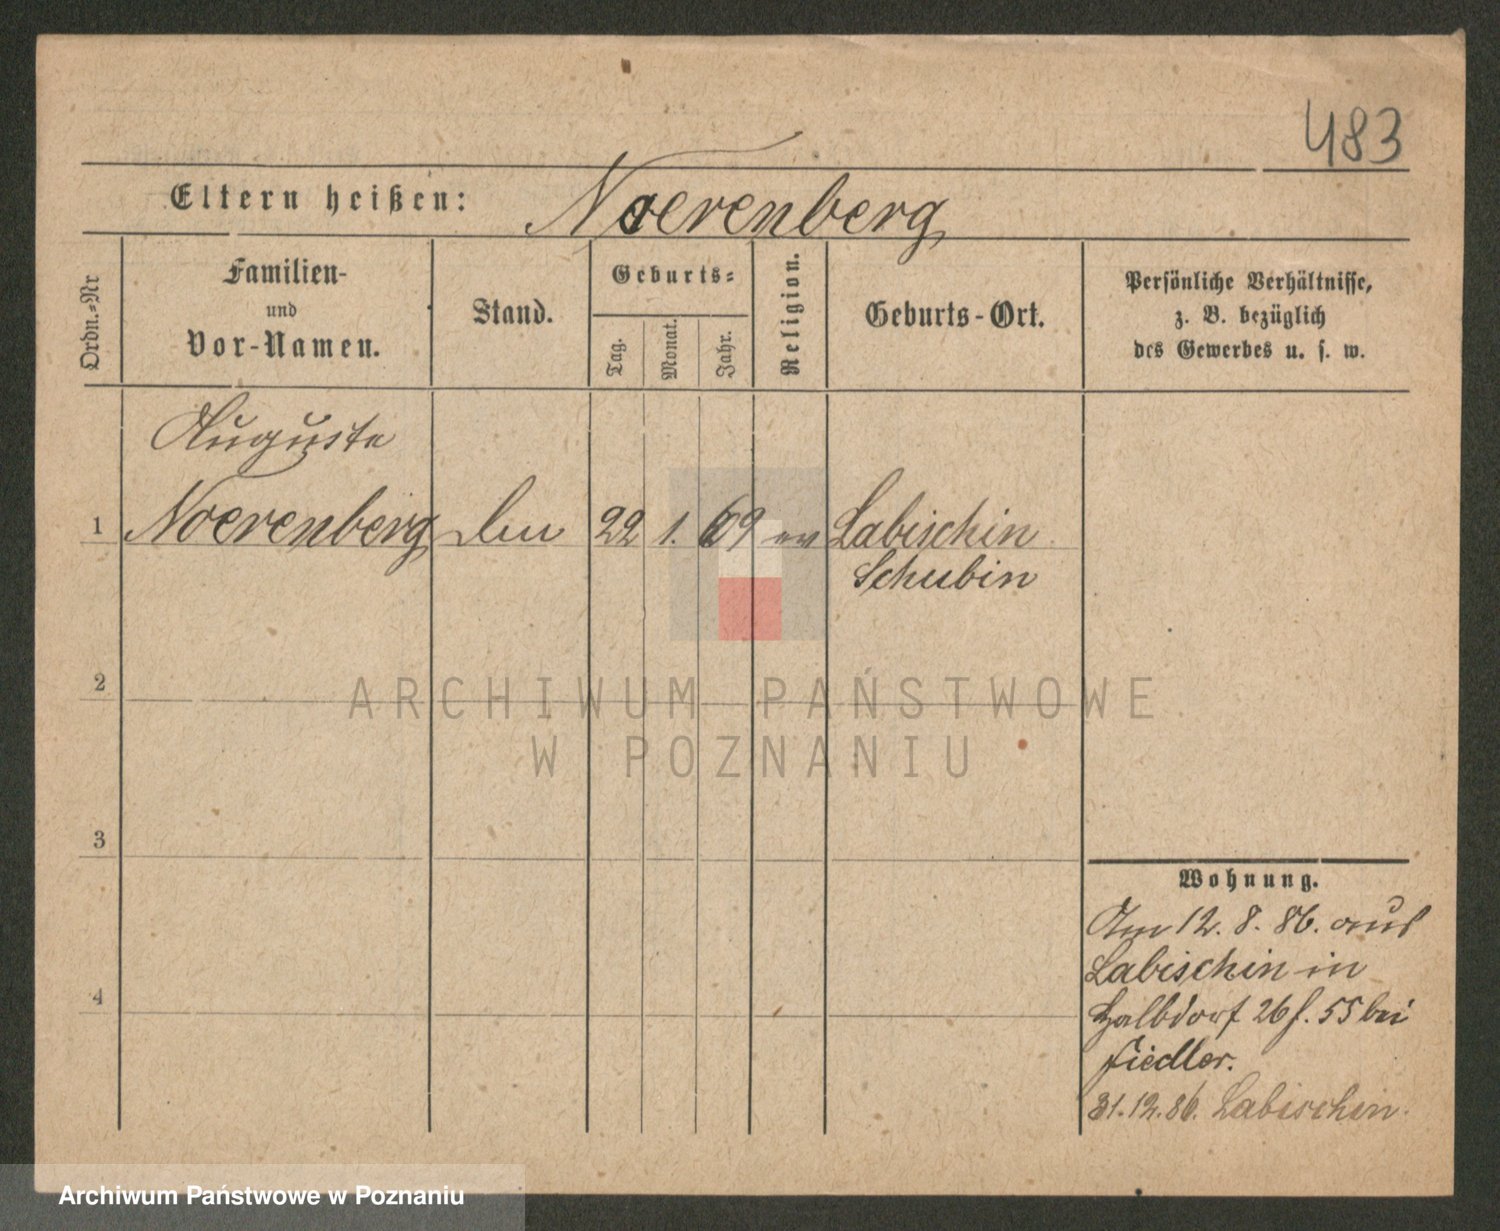 483
Eltern heißen: Noerenberg
Ordn.=Nr
Familien-
und
Vor-Namen.
Stand.
Geburts=
Tag.
Monat.
Jahr.
Religion.
Geburts-Ort.
Persönliche Verhältnisse,
z. B. bezüglich
des Gewerbes u. s. w.
Auguste
1 Noerenberg 22 1. 69 ev Labischin
Schubin
2
3
4
Wohnung.
Am 12. 8. 86. aus
Labischin in
Halbdorf 26 f. 55 bei
Fiedler.
31.12.86. Labischin.
ARCHIWUM PAŃSTWOWE
W POZNANIU
Archiwum Państwowe w Poznaniu